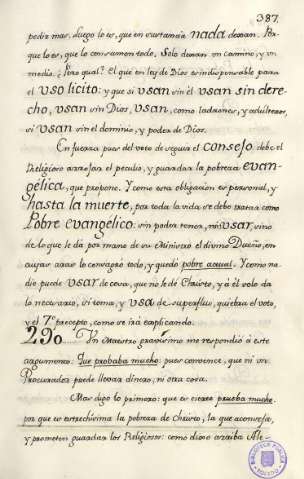 387.
pedir mas: luego lo es, que en sustancia nada dexan. Por
que lo es, que lo consuman todo. Solo dexan un camino, y un
medio. ¿Pero qual? El que en ley de Dios es indispensable para
el uso licito: y que si usan sin èl usan sin dere
cho, usan sin Dios, usan, como ladrones, y adulteros,
si usan sin el dominio, y poder de Dios.
En fuerza pues del voto de seguir el consejo debe el
Religioso arrojar el peculio, y guardar la pobreza evan-
gélica, que propone. Y como esta obligacion es personal, y
hasta la muerte, por toda la vida se debe tratar como
Pobre evangelico: sin poder tener, ni usar, sino
de lo que le da por mano de su Ministro el divino Dueño, en
cuyas aras lo consagró todo, y quedó pobre actual. Y como na-
die puede usar de cosa, que no le dé Christo, y a él solo da
lo necesario, si toma, y usa de superfluo, quiebra el voto,
y el 7º precepto, como se irá explicando.
290. Un Maestro gravisimo me respondió à este
argumento: Que probaba mucho: pues convence, que ni un
Procurador puede llevar dinero, ni otra cosa.
Mas digo lo primero: que es cierto prueba mucho.
por que es estrechisima la pobreza de Christo, la que aconseja,
y prometen guardar los Religiosos: como dixo arriba Ale-